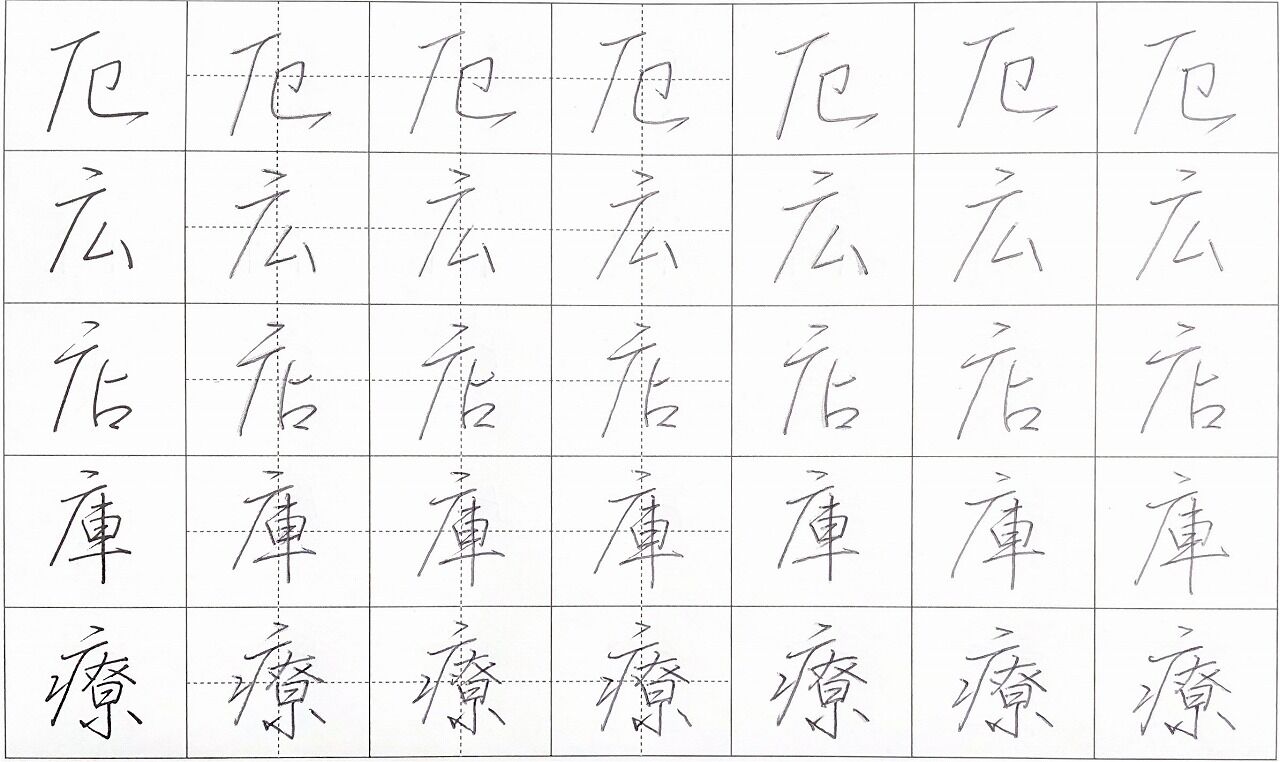 厄厄厄厄厄厄厄
広広広広広広広
店店店店店店店
庫庫庫庫庫庫庫
療療療療療療療